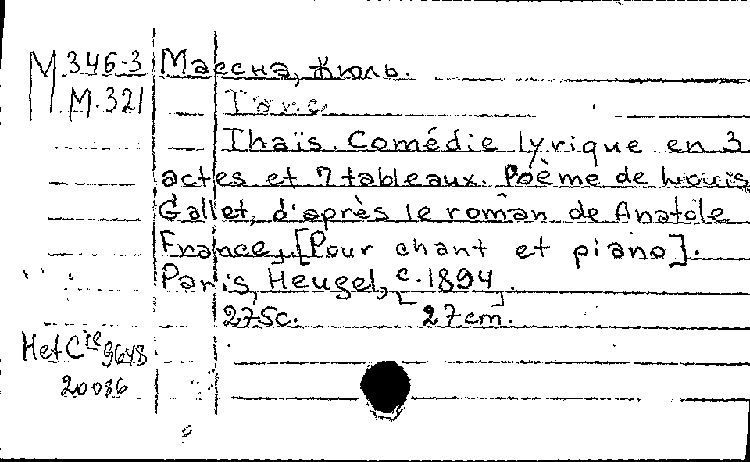 М 346-3 Массна, Жюль.
М.321 Таис
Thaïs. Comédie lyrique en 3
actes et 7 tableaux. Poème de Louis
Gallet, d'après le roman de Anatole
France, [Pour chant et piano].
Paris, Heugel, c. 1894.
275c. 27cm.
H et Cie 9648
20086